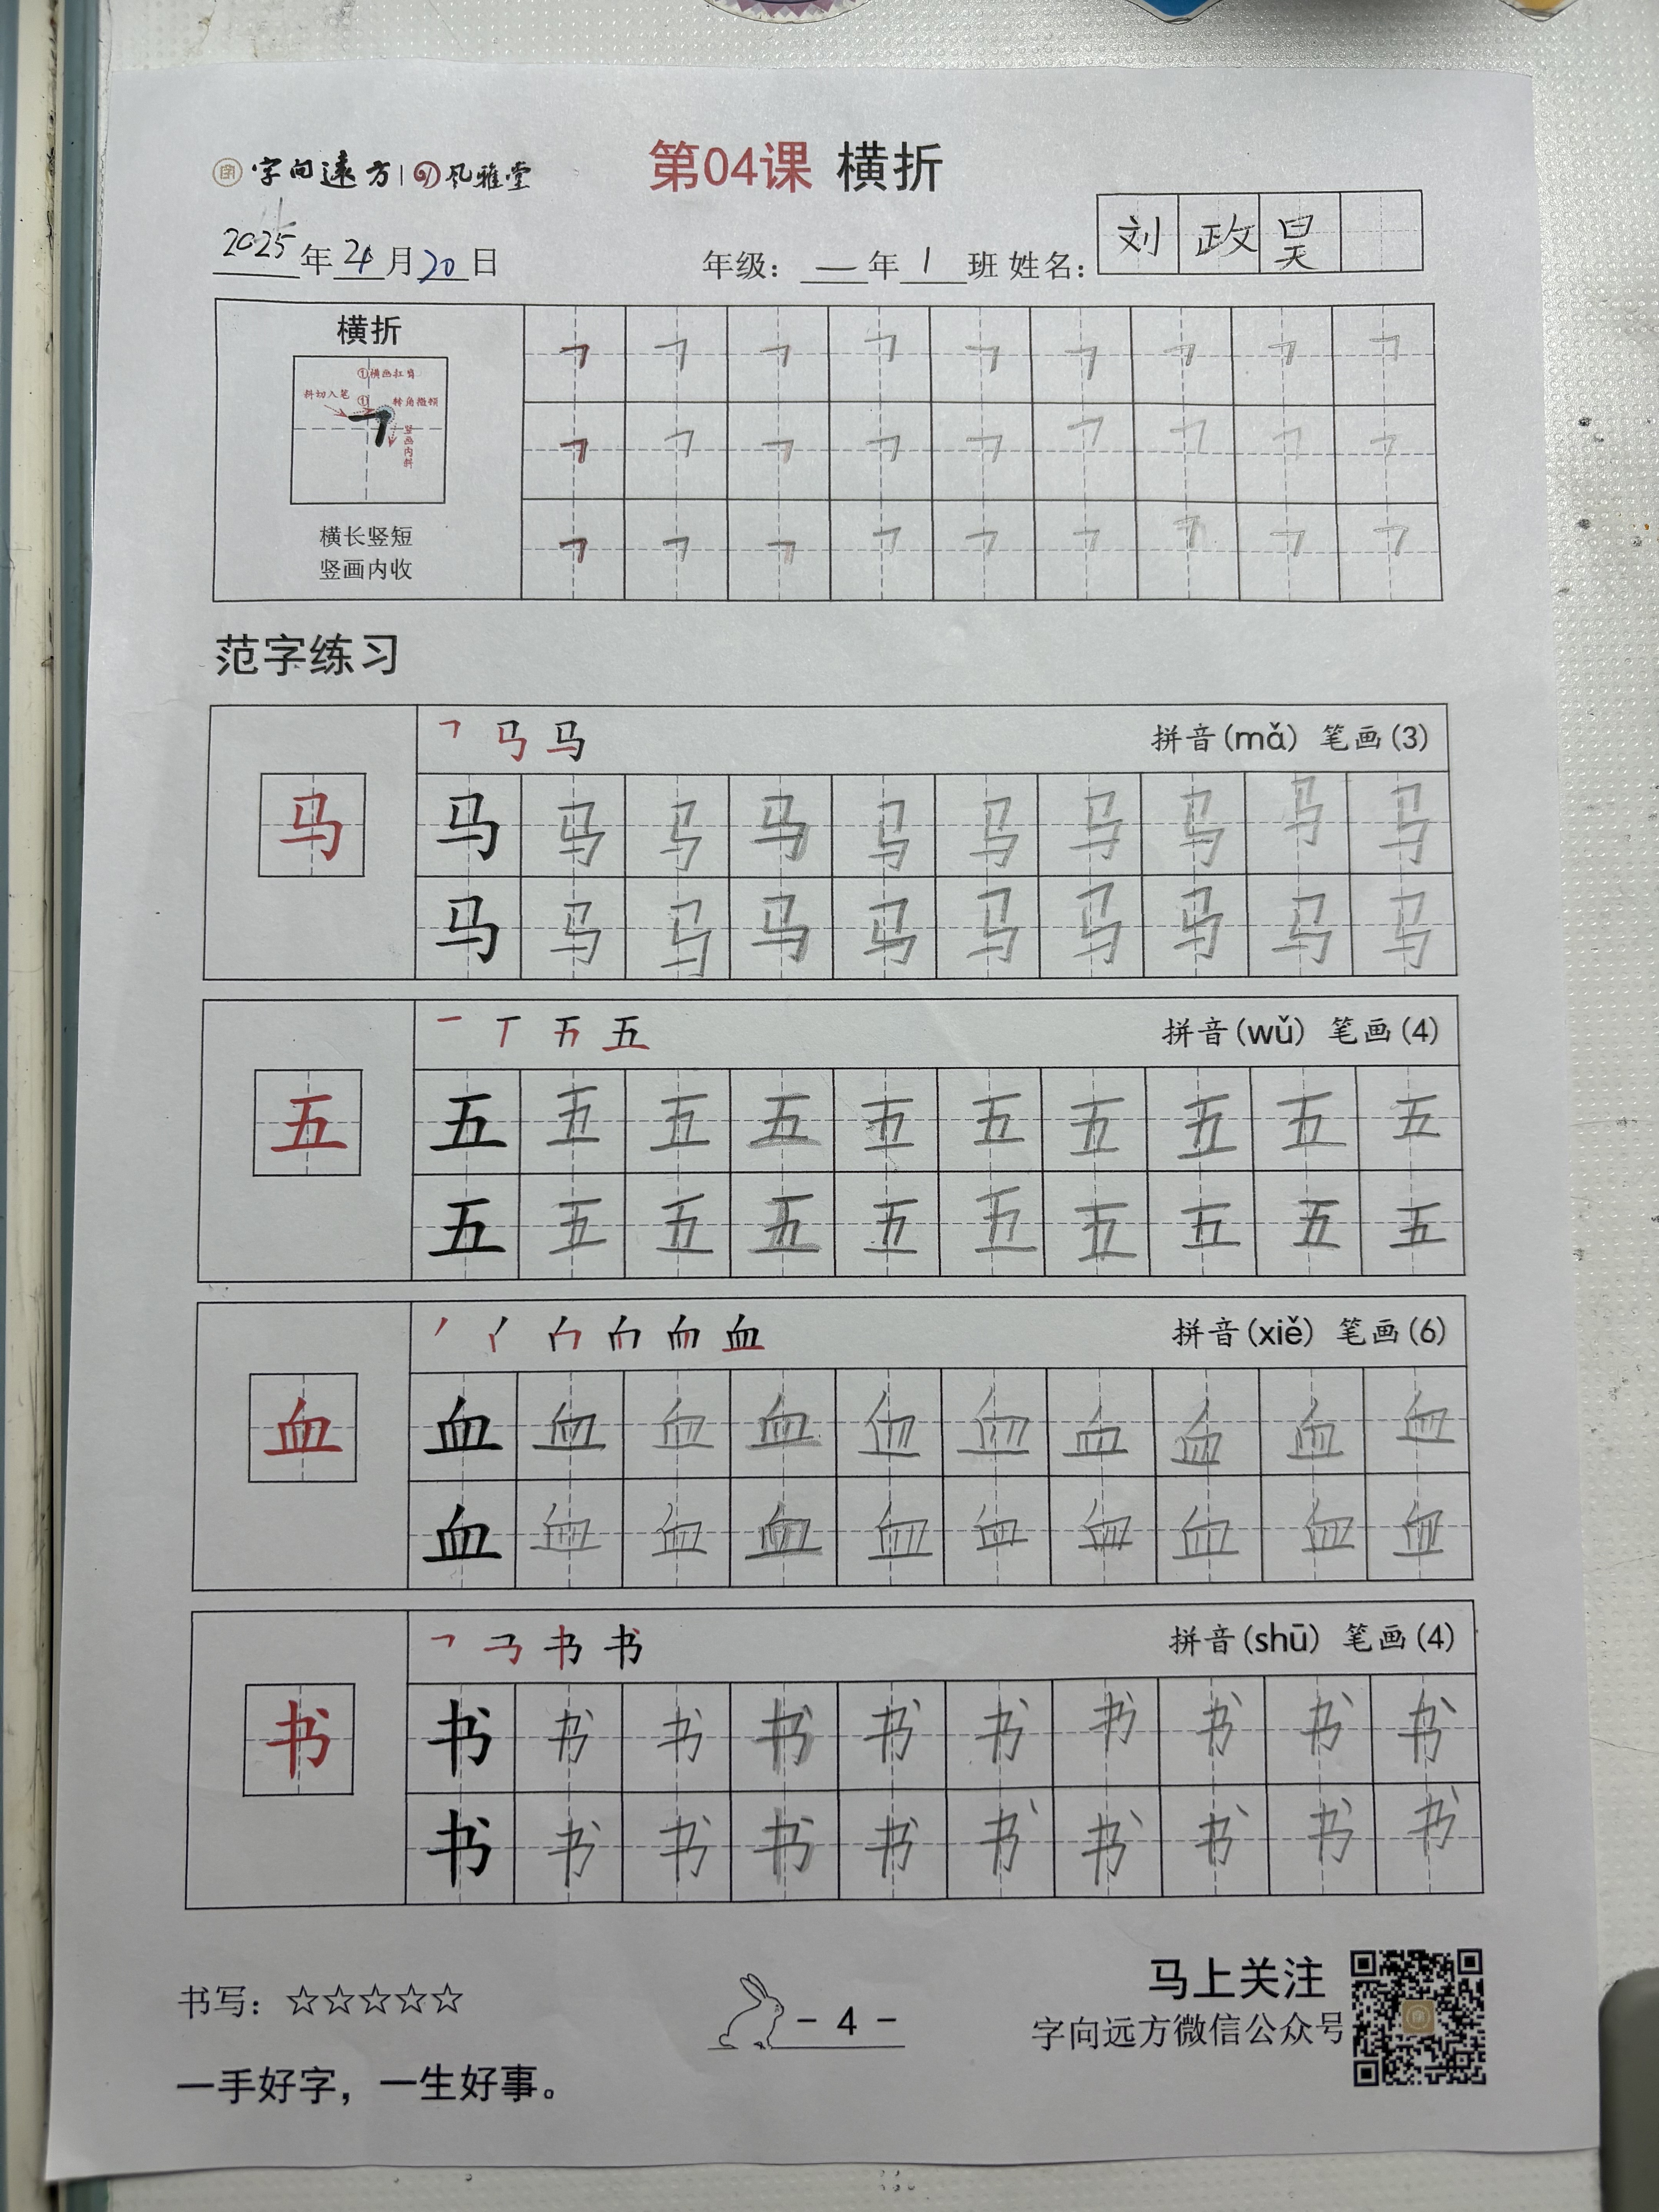 字向远方 风雅堂
第04课 横折
2025年4月20日 年级：一年1班 姓名：刘政昊
横折
①横画扛肩
斜切入笔 ① 转角微顿
竖画内斜
横长竖短
竖画内收
范字练习
马 拼音(mǎ) 笔画(3)
马 马 马 马 马 马 马 马 马 马 马
马 马 马 马 马 马 马 马 马 马
五 拼音(wǔ) 笔画(4)
五 五 五 五 五 五 五 五 五 五 五
五 五 五 五 五 五 五 五 五 五
血 拼音(xiě) 笔画(6)
血 血 血 血 血 血 血 血 血 血 血
血 血 血 血 血 血 血 血 血 血
书 拼音(shū) 笔画(4)
书 书 书 书 书 书 书 书 书 书 书
书 书 书 书 书 书 书 书 书 书
书写：☆☆☆☆☆
- 4 -
马上关注
字向远方微信公众号
一手好字，一生好事。